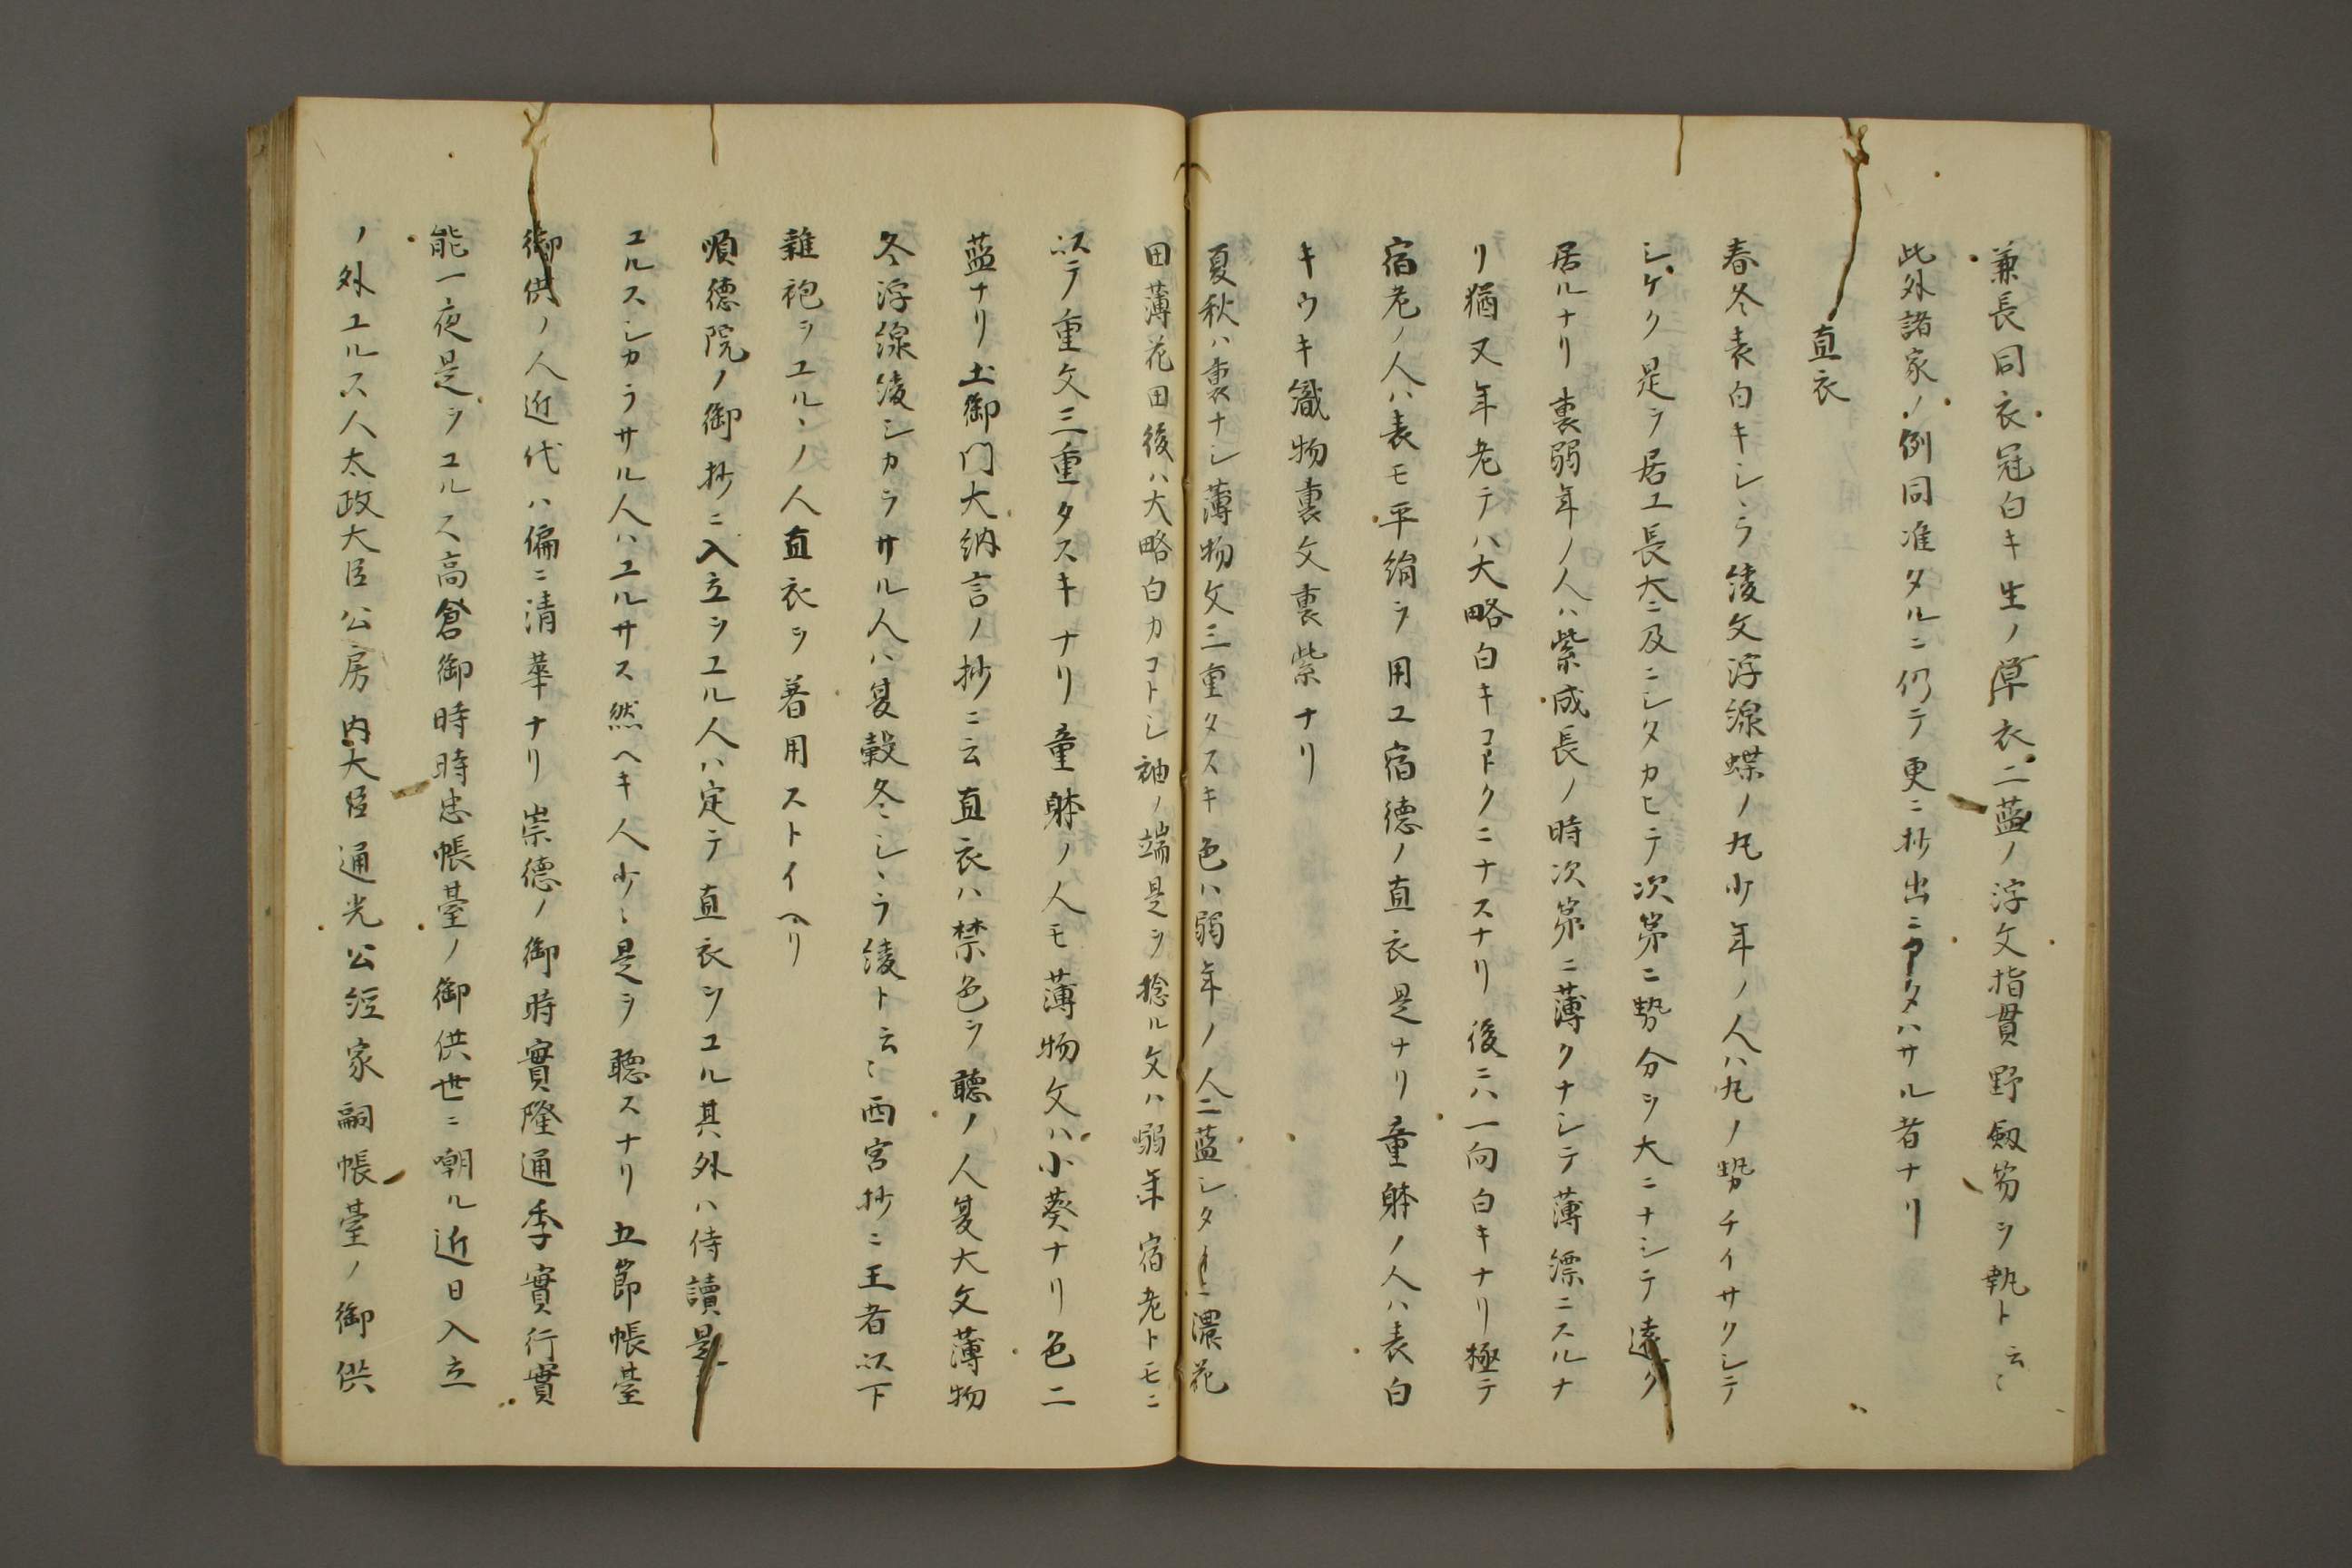 兼長同衣冠白キ生ノ單衣二藍ノ浮文指貫野劔笏ヲ執ト云〻
此外諸家ノ例同准タルニ仍テ更ニ抄出ニアタハサル者ナリ
直衣
春冬表白キシヽラ綾文浮線蝶ノ丸少年ノ人ハ丸ノ勢チイサクシテ
シケク是ヲ居ヱ長大ニ及ニシタカヒテ次第ニ勢分ヲ大ニナシテ遠ク
居ルナリ裏弱年ノ人ハ紫成長ノ時次第ニ薄クナシテ薄漂ニスルナ
リ猶又年老テハ大略白キコトクニナスナリ後ニハ一向白キナリ極テ
宿老ノ人ハ表モ平絹ヲ用ユ宿徳ノ直衣是ナリ童躰ノ人ハ表白
キウキ織物裏文裏紫ナリ
夏秋ハ裏ナシ薄物文三重タスキ色ハ弱年ノ人二藍シタヽ濃花
田薄花田後ハ大略白カコトシ袖ノ端是ヲ捻ル文ハ弱年宿老トモニ
以テ重文三重タスキナリ童躰ノ人モ薄物文ハ小葵ナリ色二
藍ナリ土御門大納言ノ抄ニ云直衣ハ禁色ヲ聽ノ人夏大文薄物
冬浮線綾シカラサル人ハ夏縠冬シヽラ綾ト云〻西宮抄ニ王者以下
雜袍ヲユルヽノ人直衣ヲ着用ストイヘリ
順徳院ノ御抄ニ入立ヲユル人ハ定テ直衣ヲユル其外ハ侍讀是
ユルスシカラサル人ハユルサス然ヘキ人少〻是ヲ聽スナリ五節帳臺
御供ノ人近代ハ偏ニ清華ナリ崇徳ノ御時實隆通季實行實
能一夜是ヲユルス高倉御時時忠帳臺ノ御供世ニ嘲ル近日入立
ノ外ユルス人太政大臣公房内大臣通光公經家嗣帳臺ノ御供